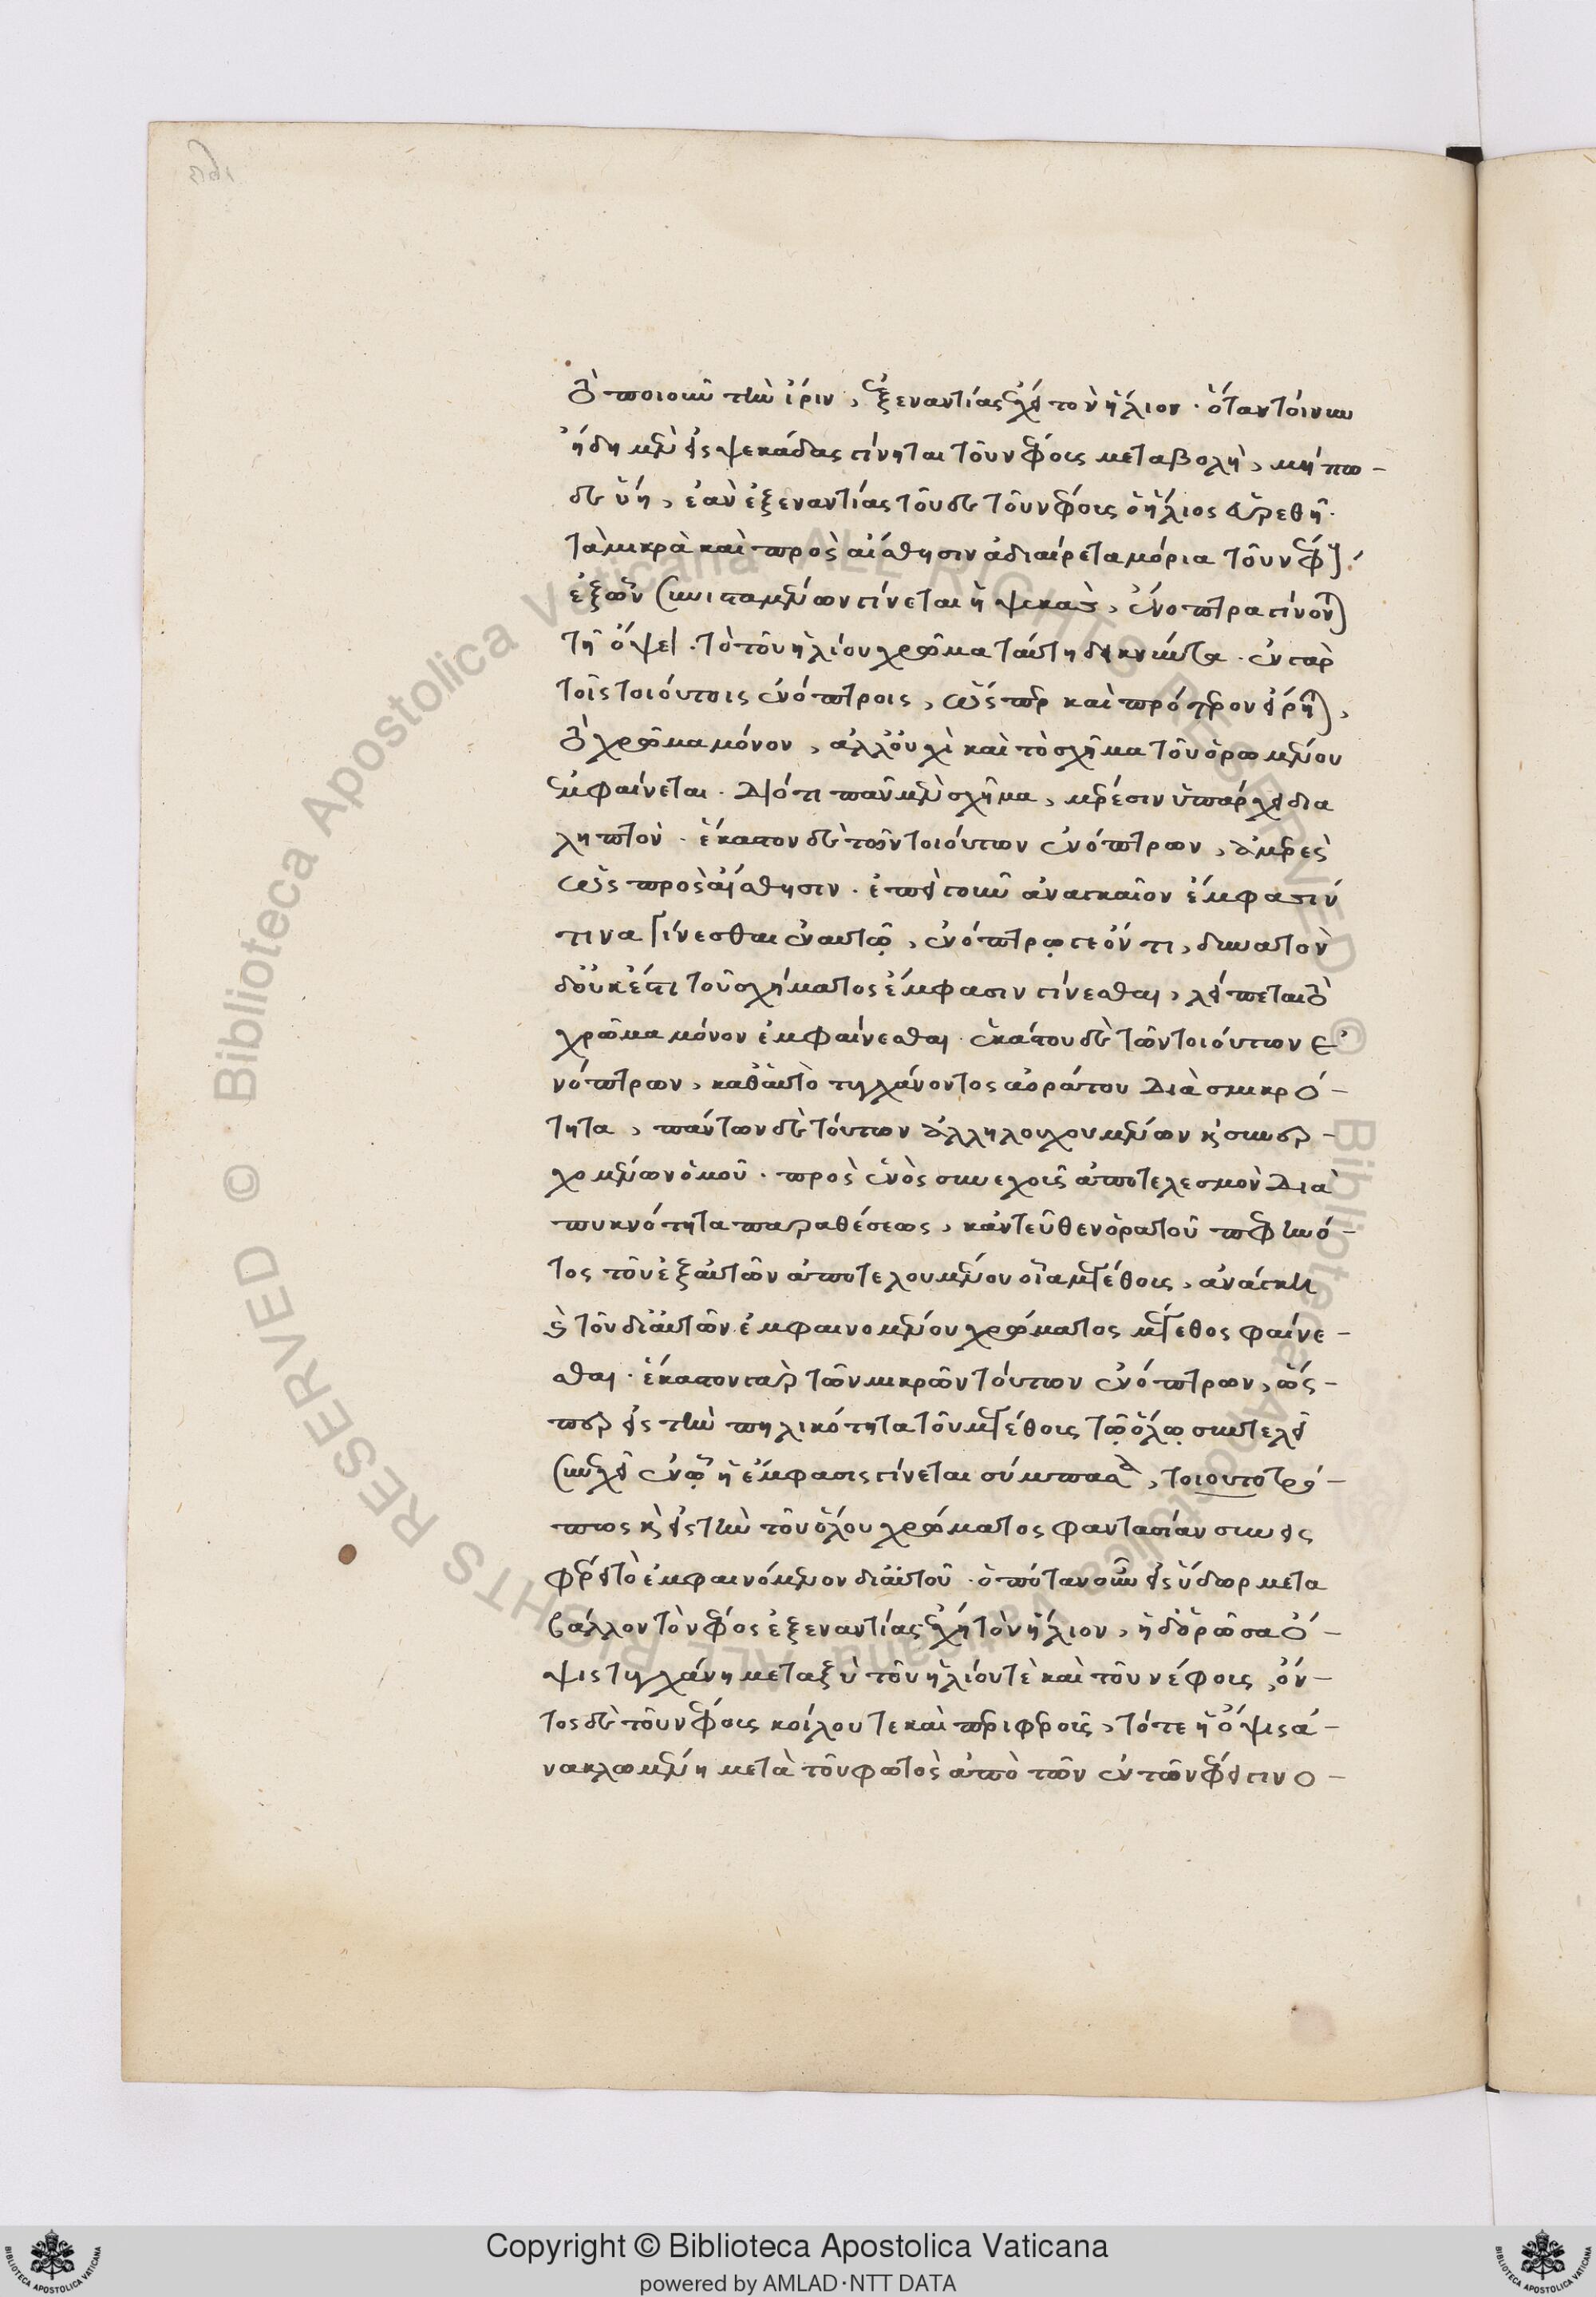 τὸ ποιοῦν τὴν ἶριν, ἐξεναντίας ἔχει τὸν ἥλιον· ὅταν τοίνυν
ἤδη μὲν εἰς ψεκάδας γίνηται τοῦ νέφους μεταβολὴ, μήπω-
δε ὕῃ, ἐὰν ἐξεναντίας τοῦδε τοῦ νέφους ὁ ἥλιος εὑρεθῇ·
τὰ μικρὰ καὶ πρὸς αἴσθησιν ἀδιαίρετα μόρια τοῦ νέφους·
ἐξ ὧν συνισταμένων γίνεται ἡ ψεκὰς, ἔνοπτρα γίνονται
τῇ ὄψει· τὸ τοῦ ἡλίου χρῶμα ταύτῃ δεικνύντα· ἐν γὰρ
τοῖς τοιούτοις ἐνόπτροις, ὥσπερ καὶ πρότερον εἴρηται,
τὸ χρῶμα μόνον, ἀλλ' οὐχὶ καὶ τὸ σχῆμα τοῦ ὁρωμένου
ἐμφαίνεται· διότι πᾶν μὲν σχῆμα, μέρεσιν ὑπάρχει δια
ληπτὸν· ἕκαστον δὲ τῶν τοιούτων ἐνόπτρων, ἀμερὲς
ὡς πρὸς αἴσθησιν· ἐπεὶ γοῦν ἀναγκαῖον ἔμφασίν
τινα γίνεσθαι ἐν αὐτῷ, ἐνόπτρῳ γε ὄντι, δυνατὸν
δ' οὐκ ἔστι τοῦ σχήματος ἔμφασιν γίνεσθαι, λείπεται τὸ
χρῶμα μόνον ἐμφαίνεσθαι· ἑκάστου δὲ τῶν τοιούτων ἐ
νόπτρων, καθ' αὑτὸ τυγχάνοντος ἀοράτου διὰ σμικρό-
τητα, πάντων δὲ τούτων ἀλληλουχουμένων καὶ συνερ-
χομένων ὁμοῦ· πρὸς ἑνὸς συνεχοῦς ἀποτελεσμὸν διὰ
πυκνότητα παραθέσεως, κἀντεῦθεν ὁρατοῦ πεφηνό-
τος τοῦ ἐξ αὐτῶν ἀποτελουμένου οἷα μεγέθους, ἀνάγκη
καὶ τοῦ δι' αὐτῶν ἐμφαινομένου χρώματος μέγεθος φαίνε-
σθαι· ἕκαστον γὰρ τῶν μικρῶν τούτων ἐνόπτρων, ὥς-
περ εἰς τὴν πηλικότητα τοῦ μεγέθους τῷ ὅλῳ συντελεῖ
συνεχεῖ ἐν ᾧ ἡ ἔμφασις γίνεται σύμπασα, τοιουτοτρό-
πως καὶ εἰς τὴν τοῦ ὅλου χρώματος φαντασίαν συνεις
φέρει τὸ ἐμφαινόμενον δι' αὐτοῦ· ὁπόταν οὖν εἰς ὕδωρ μετα
βάλλον τὸ νέφος ἐξεναντίας ἔχῃ τὸν ἥλιον, ἡ δ' ὁρῶσα ὄ-
ψις τυγχάνῃ μεταξὺ τοῦ ἡλίου τὲ καὶ τοῦ νέφους, ὄν-
τος δὲ τοῦ νέφους κοίλου τε καὶ περιφεροῦς, τότε ἡ ὄψις ἀ-
νακλωμένη μετὰ τοῦ φωτὸς ἀπὸ τῶν ἐν τῷ νέφει γινο-
Biblioteca Apostolica Vaticana ALL RIGHTS RESERVED © Biblioteca Apostolica Vaticana ALL RIGHTS RESERVED ©
Copyright © Biblioteca Apostolica Vaticana
powered by AMLAD·NTT DATA
BIBLIOTECA APOSTOLICA VATICANA
BIBLIOTECA APOSTOLICA VATICANA